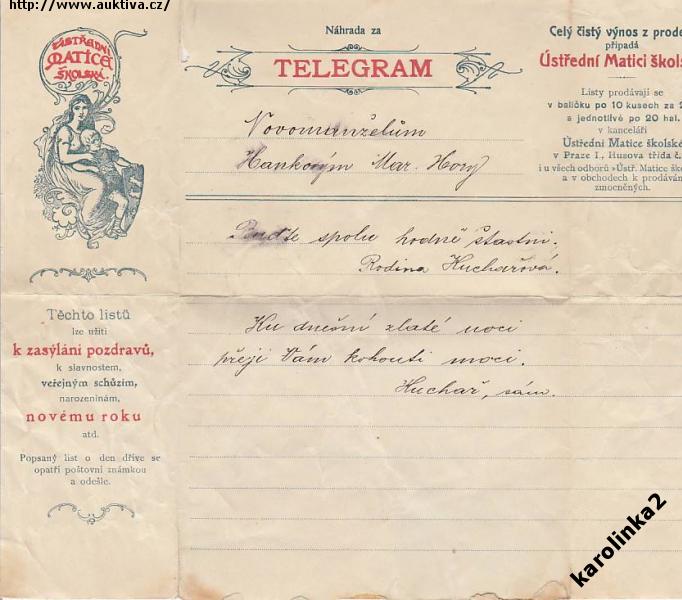 http://www.auktiva.cz/
ÚSTŘEDNÍ
MATICE
ŠKOLSKÁ
Náhrada za
TELEGRAM
Celý čistý výnos z prode
připadá
Ústřední Matici škols
Listy prodávají se
v balíčku po 10 kusech za 2
a jednotlivě po 20 hal.
v kanceláři
Ústřední Matice školské
v Praze I., Husova třída č.
i u všech odborů »Ústř. Matice šk
a v obchodech k prodáván
zmocněných.
Novomanželům
Hankovým Mar. Hory
Buďte spolu hodně šťastni.
Rodina Huchařová.
Ku dnešní zlaté noci
přeji Vám kohoutí moci.
Huchař, sám.
Těchto listů
lze užíti
k zasýlání pozdravů,
k slavnostem,
veřejným schůzím,
narozeninám,
novému roku
atd.
Popsaný list o den dříve se
opatří poštovní známkou
a odešle.
karolinka2